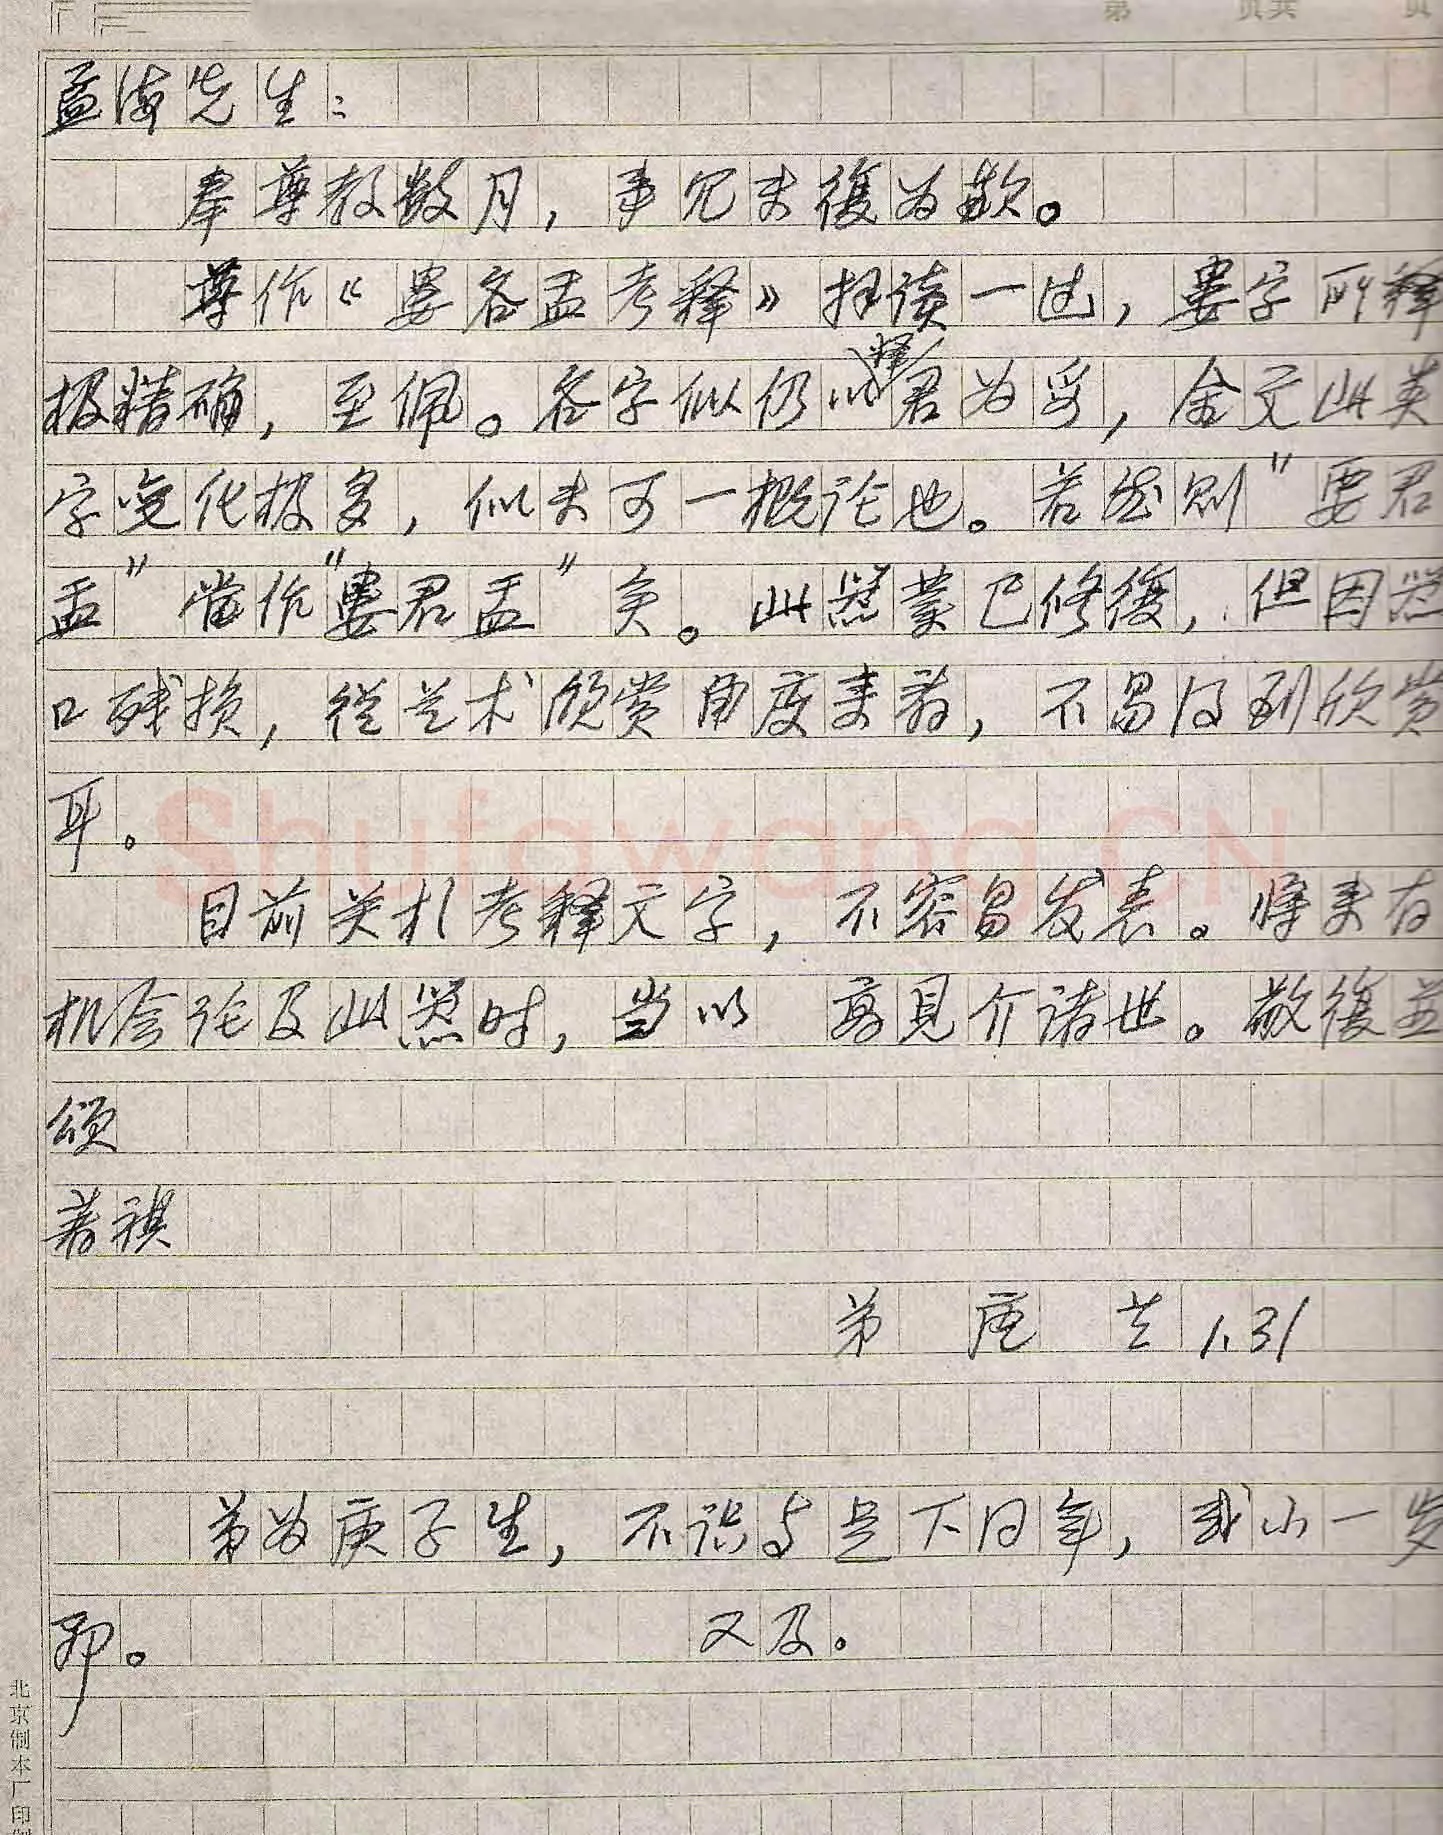 第 页共 页
孟海先生：
奉尊教数月，事冗未復为歉。
尊作《婁各盂考释》拜读一过，婁字所释
极精确，至佩。各字似仍以释君为妥，金文此类
字变化极多，似未可一概论也。若然则“要君
盂”当作“婁君盂”矣。此器業已修復，但因器
口残损，從艺术欣赏角度来看，不易得到欣赏
耳。
目前关於考释文字，不容易发表。将来有
机会论及此器时，当以 高見介诸世。敬復並
颂
著祺
弟 唐 兰 1.31
弟为庚子生，不识与足下同年，或小一岁
耶。 又及。
北京制本厂印制
Shufawang.CN